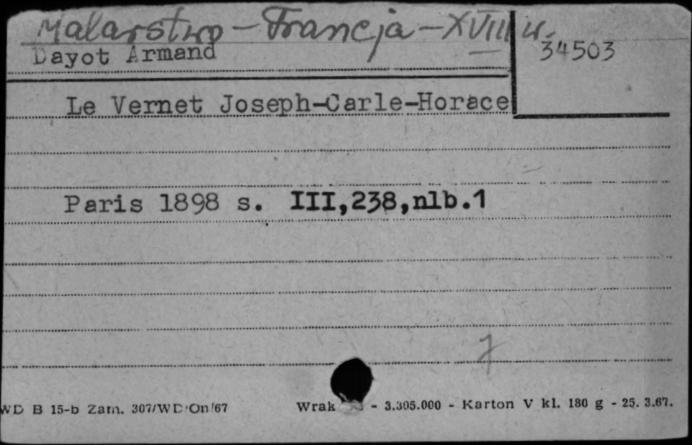 Malarstwo - Francja - XVIII w.
Dayot Armand
34503
Le Vernet Joseph-Carle-Horace
Paris 1898 s. III,238,nlb.1
7
WD B 15-b Zam. 307/WD-On/67
Wrak - 3.305.000 - Karton V kl. 180 g - 25. 3.67.